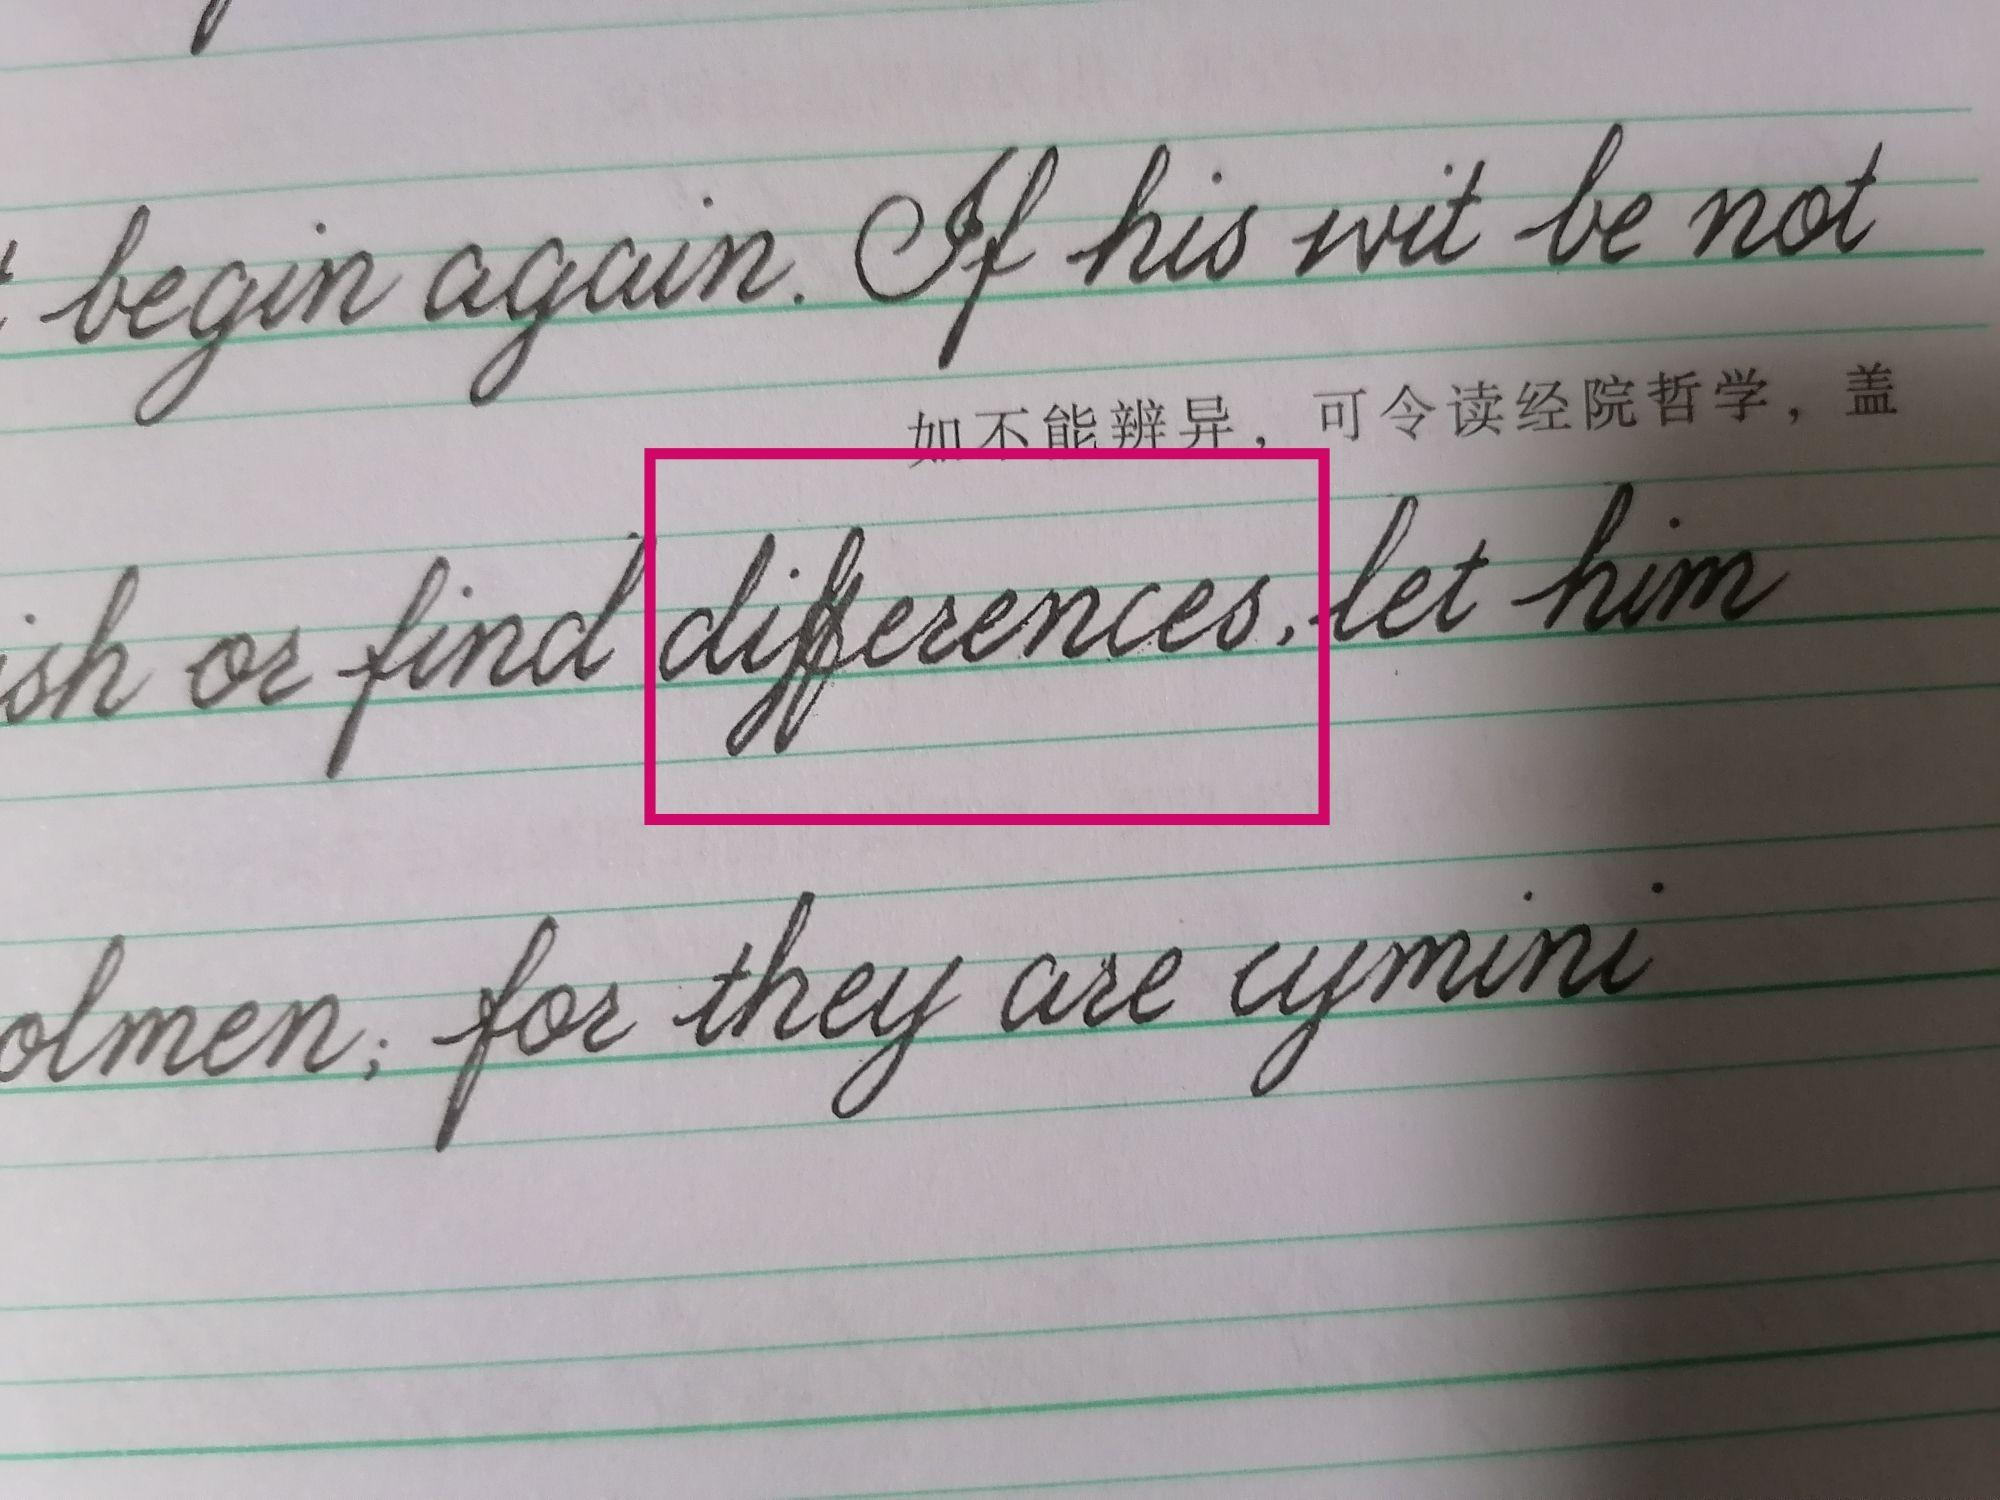 begin again. If his wit be not
如不能辨异，可令读经院哲学，盖
ish or find differences, let him
olmen; for they are cymini